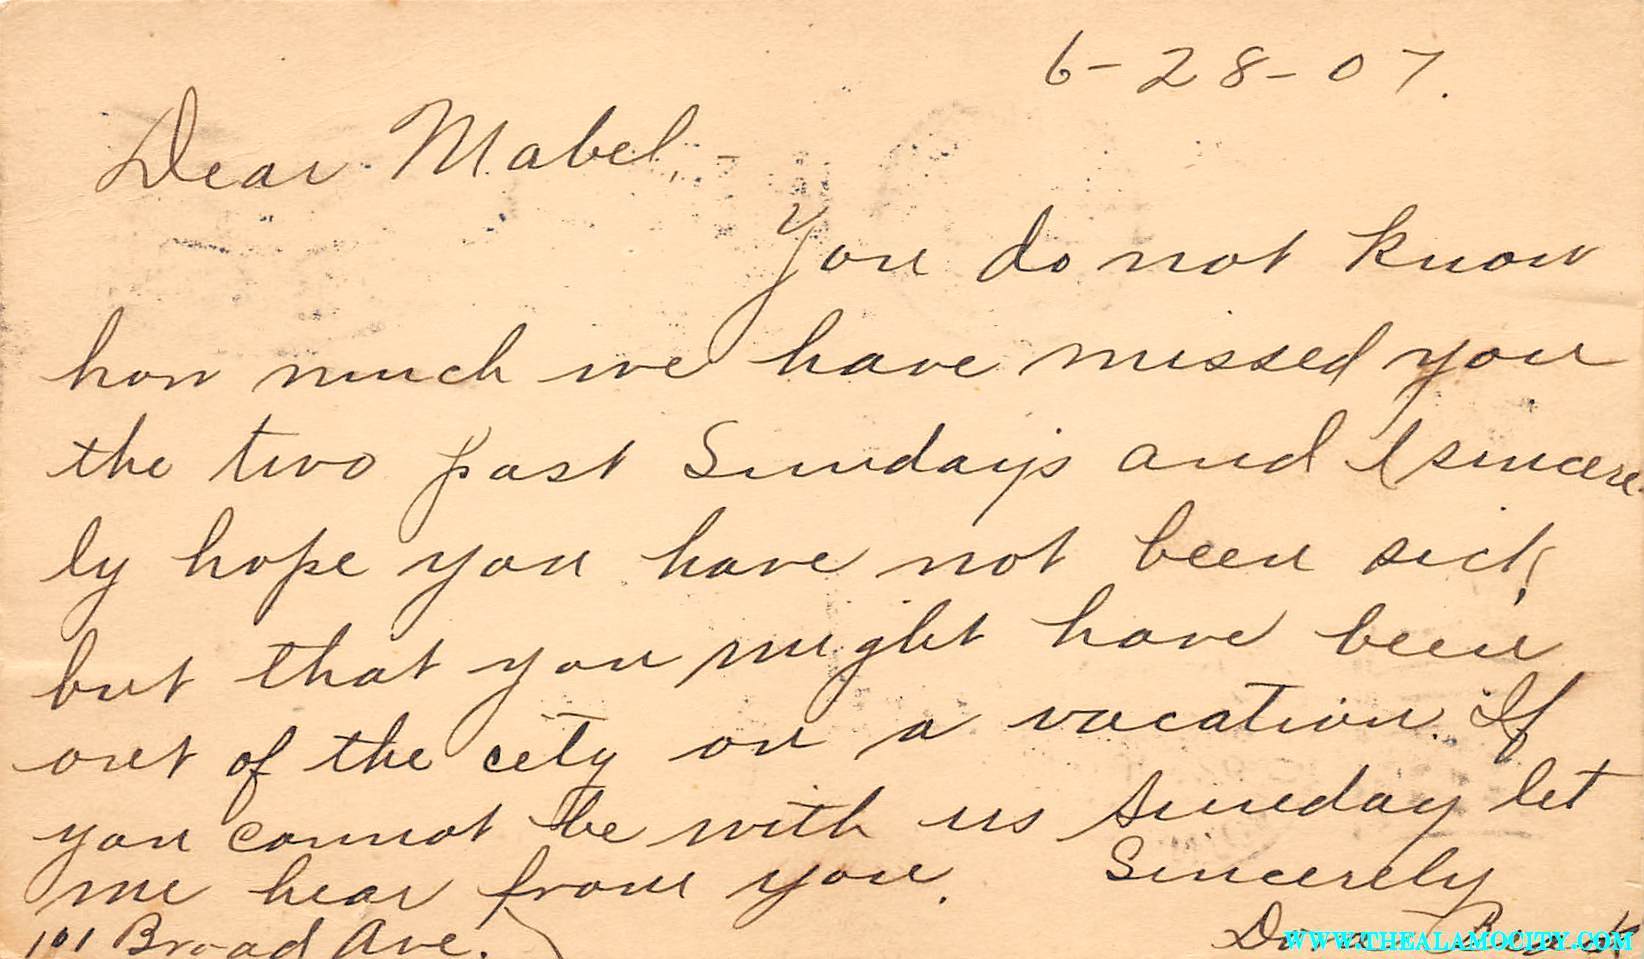 6-28-07.
Dear Mabel, -
You do not know
how much we have missed you
the two past Sundays and I sincere-
ly hope you have not been sick,
but that you might have been
out of the city on a vacation. If
you cannot be with us Sunday let
me hear from you. Sincerely
101 Broad Ave.
WWW.THEALAMOCITY.COM